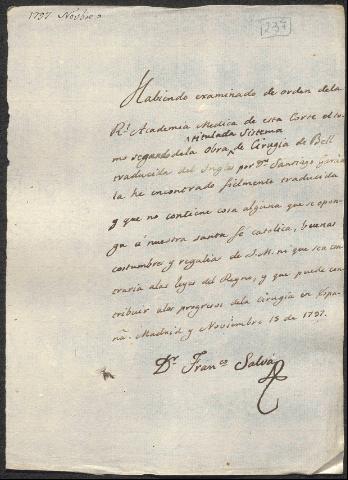 1797 Novbre
237
Habiendo examinado de orden dela
Rl. Academia Medica de esta Corte el to-
titulada Sistema
mo segundo dela Obra de Cirugia de Bell
traducida del Ingles por Dn. Santiago
la he encontrado fielmente traducida
y que no contiene cosa alguna que se opon-
ga á nuestra santa fé catolica, buenas
costumbres y regalias de S.M. ni que sea con-
traria alas leyes del Reyno, y que puede con-
tribuir alos progresos dela cirugia en Espa-
ña. Madrid y Noviembre 15 de 1797.
Dr. Franco Salvá